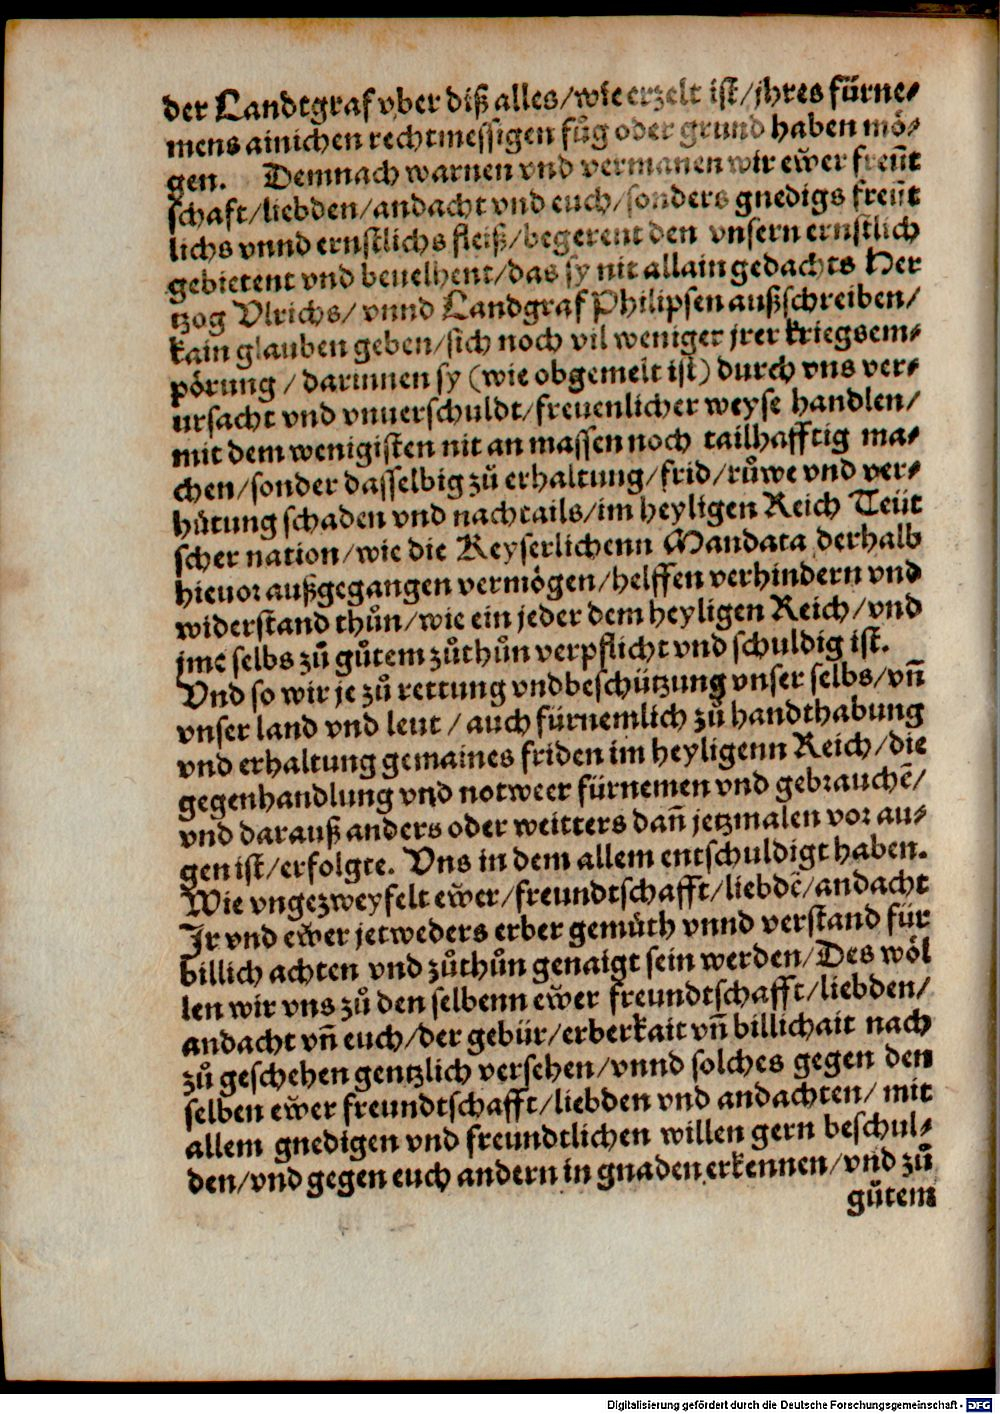 der Landtgraf vber diß alles/wie erzelt ist/jhres fürne⸗
mens ainichen rechtmessigen fůg oder grund haben mö⸗
gen. Demnach warnen vnd vermanen wir ew̃er freũt
schaft/liebden/andacht vnd euch/sonders gnedigs freũt
lichs vnnd ernstlichs fleiß/begerent den vnsern ernstlich
gebietent vnd beuelhent/das sy nit allain gedachts Her
tzog Vlrichs/ vnnd Landgraf Philipsen außschreiben/
kain glauben geben/sich noch vil weniger jrer kriegsem⸗
pörung/ darinnen sy (wie obgemelt ist) durch vns ver⸗
ursacht vnd vnuerschuldt/freuenlicher weyse handlen/
mit dem wenigisten nit an massen noch tailhafftig ma⸗
chen/sonder dasselbig zů erhaltung/frid/růwe vnd ver⸗
hütung schaden vnd nachtails/im heyligen Reich Teüt
scher nation/wie die Keyserlichenn Mandata derhalb
hieuor außgegangen vermögen/helffen verhindern vnd
widerstand thůn/wie ein jeder dem heyligen Reich/vnd
jme selbs zů gůtem zůthůn verpflicht vnd schuldig ist.
Vnd so wir je zů rettung vnd beschützung vnser selbs/vñ
vnser land vnd leut / auch fürnemlich zů handthabung
vnd erhaltung gemaines friden im heyligenn Reich/die
gegenhandlung vnd notweer fürnemen vnd gebrauchẽ/
vnd darauß anders oder weitters dañ jetzmalen vor au⸗
gen ist/erfolgte. Vns in dem allem entschuldigt haben.
Wie vngezweyfelt ew̃er/freundtschafft/liebdẽ/andacht
Ir vnd ew̃er jetweders erber gemüth vnnd verstand für
billich achten vnd zůthůn genaigt sein werden/Des wöl
len wir vns zů den selbenn ew̃er freundtschafft/liebden/
andacht vñ euch/der gebür/erberkait vñ billichait nach
zů geschehen gentzlich versehen/vnnd solches gegen den
selben ew̃er freundtschafft/liebden vnd andachten/ mit
allem gnedigen vnd freundtlichen willen gern beschul⸗
den/vnd gegen euch andern in gnaden erkennen/vnd zů
gůtem
Digitalisierung gefördert durch die Deutsche Forschungsgemeinschaft - DFG